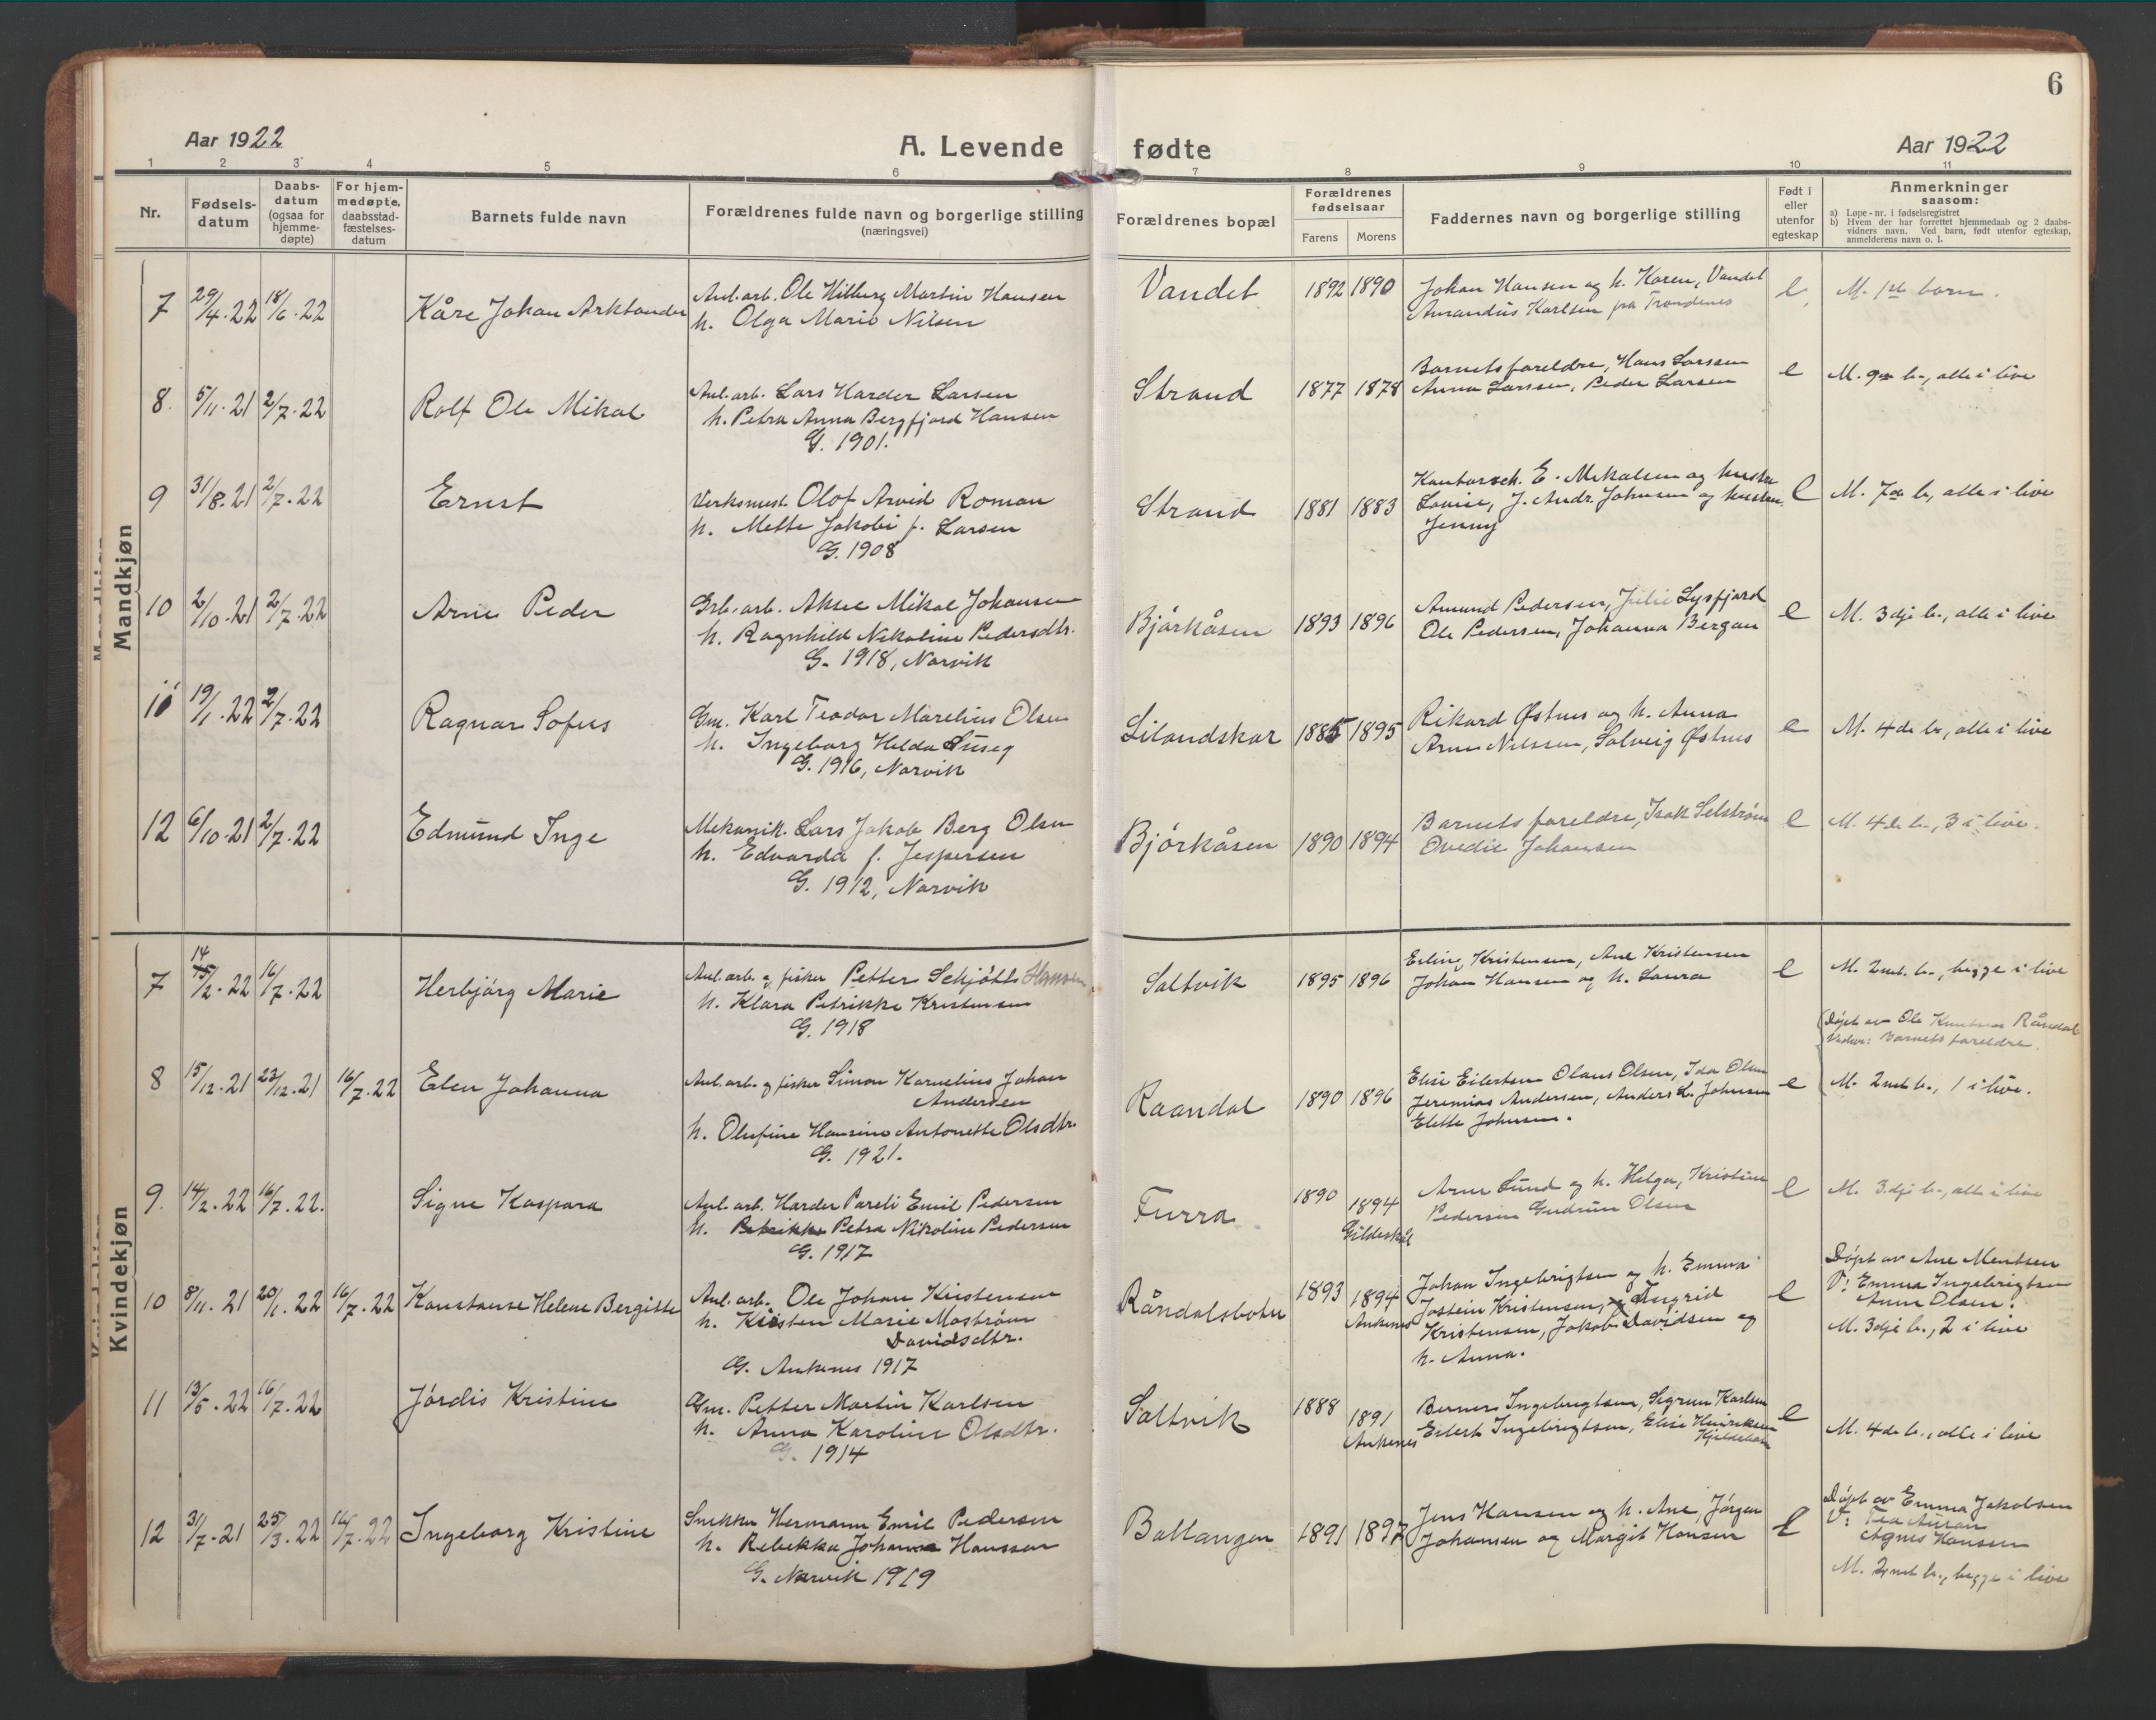 6
Aar 1922
A. Levende fødte
Aar 1922
1 2 3 4 5 6 7 8 9 10 11
Nr.
Fødsels-
datum
Daabs-
datum
(ogsaa for
hjemme-
døpte)
For hjem-
medøpte,
daabsstad-
fæstelses-
datum
Barnets fulde navn
Forældrenes fulde navn og borgerlige stilling
(næringsvei)
Forældrenes bopæl
Forældrenes
fødselsaar
Farens
Morens
Faddernes navn og borgerlige stilling
Født i
eller
utenfor
egteskap
Anmerkninger
saasom:
a) Løpe-nr. i fødselsregistret
b) Hvem der har forrettet hjemmedaab og 2 daabs-
vidners navn. Ved barn, født utenfor egteskap,
anmelderens navn o. l.
Mandkjøn
7 29/4.22 18/6.22 Kåre Johan Arktander
Anl.arb. Ole Hilberg Martin Hansen
h. Olga Marie Nilsen
Vandet 1892 1890
Johan Hansen og h. Karen, Vandet
Amandus Karlsen fra Trondenes
e M. 1ste barn.
8. 5/11.21 2/7.22 Rolf Ole Mikal
Anl.arb. Lars Harder Larsen
h. Petra Anna Bergfjord Hansen
G. 1901.
Strand 1877 1878
Barnets foreldre, Hans Larssen
Anna Larssen, Peder Larsen
e M. 9de b., alle i live
9 31/8.21 2/7.22 Ernst
Verksmest. Olof Arvid Roman
h. Mette Jakobi f. Larsen
G. 1908
Strand 1881 1883
E. Mikalsen og hustru
Lovise, J. Andr. Johnsen og hustru
Jenny
e M. 7de b., alle i live
10 2/10.21 2/7.22 Arne Peder
Grb.arb. Aksel Mikal Johansen
h. Ragnhild Nikoline Pedersdtr.
G. 1918, Narvik
Bjørkåsen 1893 1896
Amund Pedersen, Julie Lysfjord
Ole Pedersen, Johanna Bergan
e M. 3dje b., alle i live
11 19/1.22 2/7.22 Ragnar Sofus
Gm. Karl Teodor Marelius Olsen
h. Ingeborg Helda
G. 1916, Narvik
Lilandskar 1885 1895
Rikard Østnes og h. Anna
Arne Nilssen, Solveig Østnes
e M. 4de b., alle i live
12 6/10.21 2/7.22 Edmund Inge
Mekanik. Lars Jakob Berg Olsen
h. Edvarda f. Jespersen
G. 1912, Narvik
Bjørkåsen 1890 1894
Barnets foreldre, Isak Selstrøm
Ovedie Johansen
e M. 4de b., 3 i live.
Kvindekjøn
7 14/2.22 16/7.22 Herbjørg Marie
Anl.arb. og fisker Petter Schjøtts Hansen
h. Klara Petrikke Kristensen
G. 1918
Saltvik 1895 1896
Erling Kristensen, Ane Kristensen
Johan Hansen og h. Laura
e M. 2net b., begge i live
8 15/12.21 23/12.21 16/7.22 Elen Johanna
Anl.arb. og fisker Simon Kornelius Johan
Andersen
h. Olufine Hansine Antonette Olsdtr.
G. 1921.
Raandal 1890 1896
Elise Eilertsen Olaus Olsen, Ida Olsen
Jeremias Andersen, Anders L. Johnsen
Elette Johnsen.
e
Døpt av Ole Knutsen Råndal
Vidner: Barnets foreldre.
M. 2net b., 1 i live.
9. 14/2.22 16/7.22. Signe Kaspara
Anl.arb. Harder Pareli Emil Pedersen
h. Petra Nikoline Pedersen
G. 1917
Furra 1890 1894
Gildeskål
Arne Lund og h. Helga, Kristine
Pedersen Gudrun Olsen
e M. 3dje b., alle i live
10 8/11.21 20/1.22 16/7.22 Konstanse Helene Bergitte
Anl.arb. Ole Johan Kristensen
h. Kirsten Marie Mostrøm
Davidsdtr.
G. Ankenes 1917
Råndalsbotn 1893 1894
Ankenes
Johan Ingebrigtsen og h. Emma
Jostein Kristensen, Ingrid
Kristensen, Jakob Davidsen og
h. Anna.
e
Døpt av Ane Mentsen
V: Emma Ingebrigtsen
Anne Olsen.
M. 3dje b., 2 i live
11 13/5.22 16/7.22 Jórdis Kristine
Gm. Petter Martin Karlsen
h. Anna Karoline Olsdtr.
G. 1914
Saltvik 1888 1891
Ankenes
Berner Ingebrigtsen, Sigrun Karlsen
Eilert Ingebrigtsen, Elise Henriksen
e M. 4de b., alle i live
12 31/7.21 25/3.22 16/7.22 Ingeborg Kristine
Snekker Hermann Emil Pedersen
h. Rebekka Johanna Hanssen
G. Narvik 1919
Ballangen 1891 1897
Jens Hansen og h. Ane, Jørgen
Johansen og Margit Hansen
e
Døpt av Emma Jakobsen
V:
Agnes Hanssen
M. 2net b., begge i live